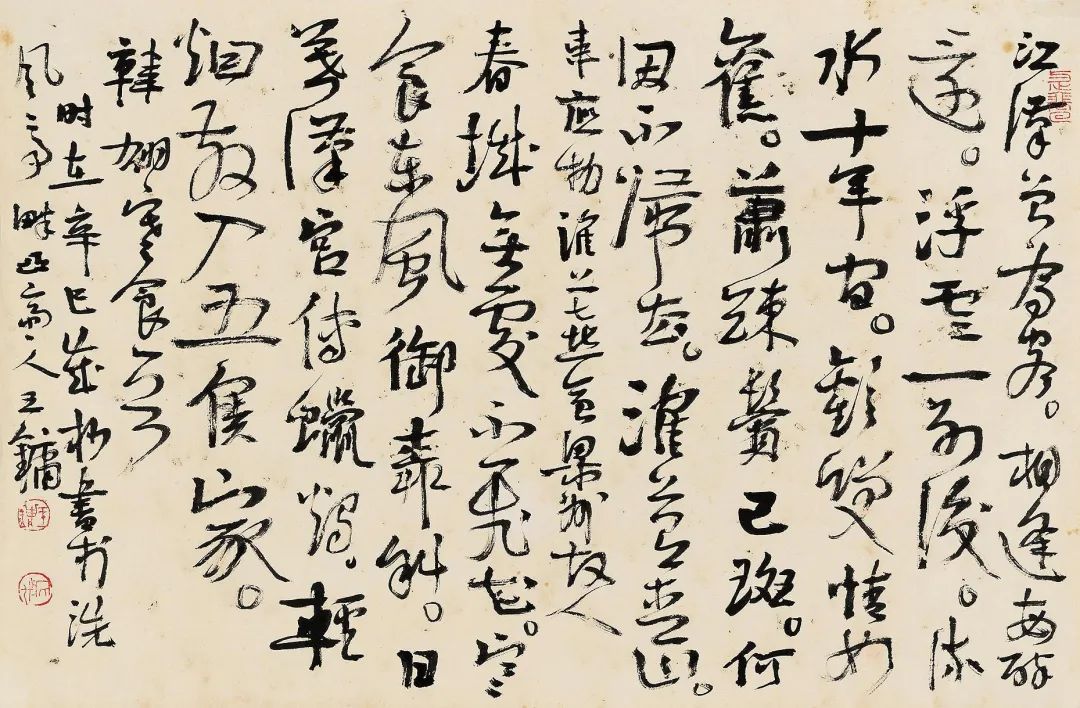 江漢曾为客。相逢每醉
還。浮雲一别後。流
水十年间。歡笑情如
舊。蕭疎鬢已斑。何
因不歸去。淮上山。
韦應物淮上喜會梁州故人
春城無處不飛花。寒
食東風御柳斜。日
暮漢宫传蠟燭。輕
烟散入五侯家。
韓翃寒食
时在辛巳歲杪書於洗
风亭畔齋人王鏞